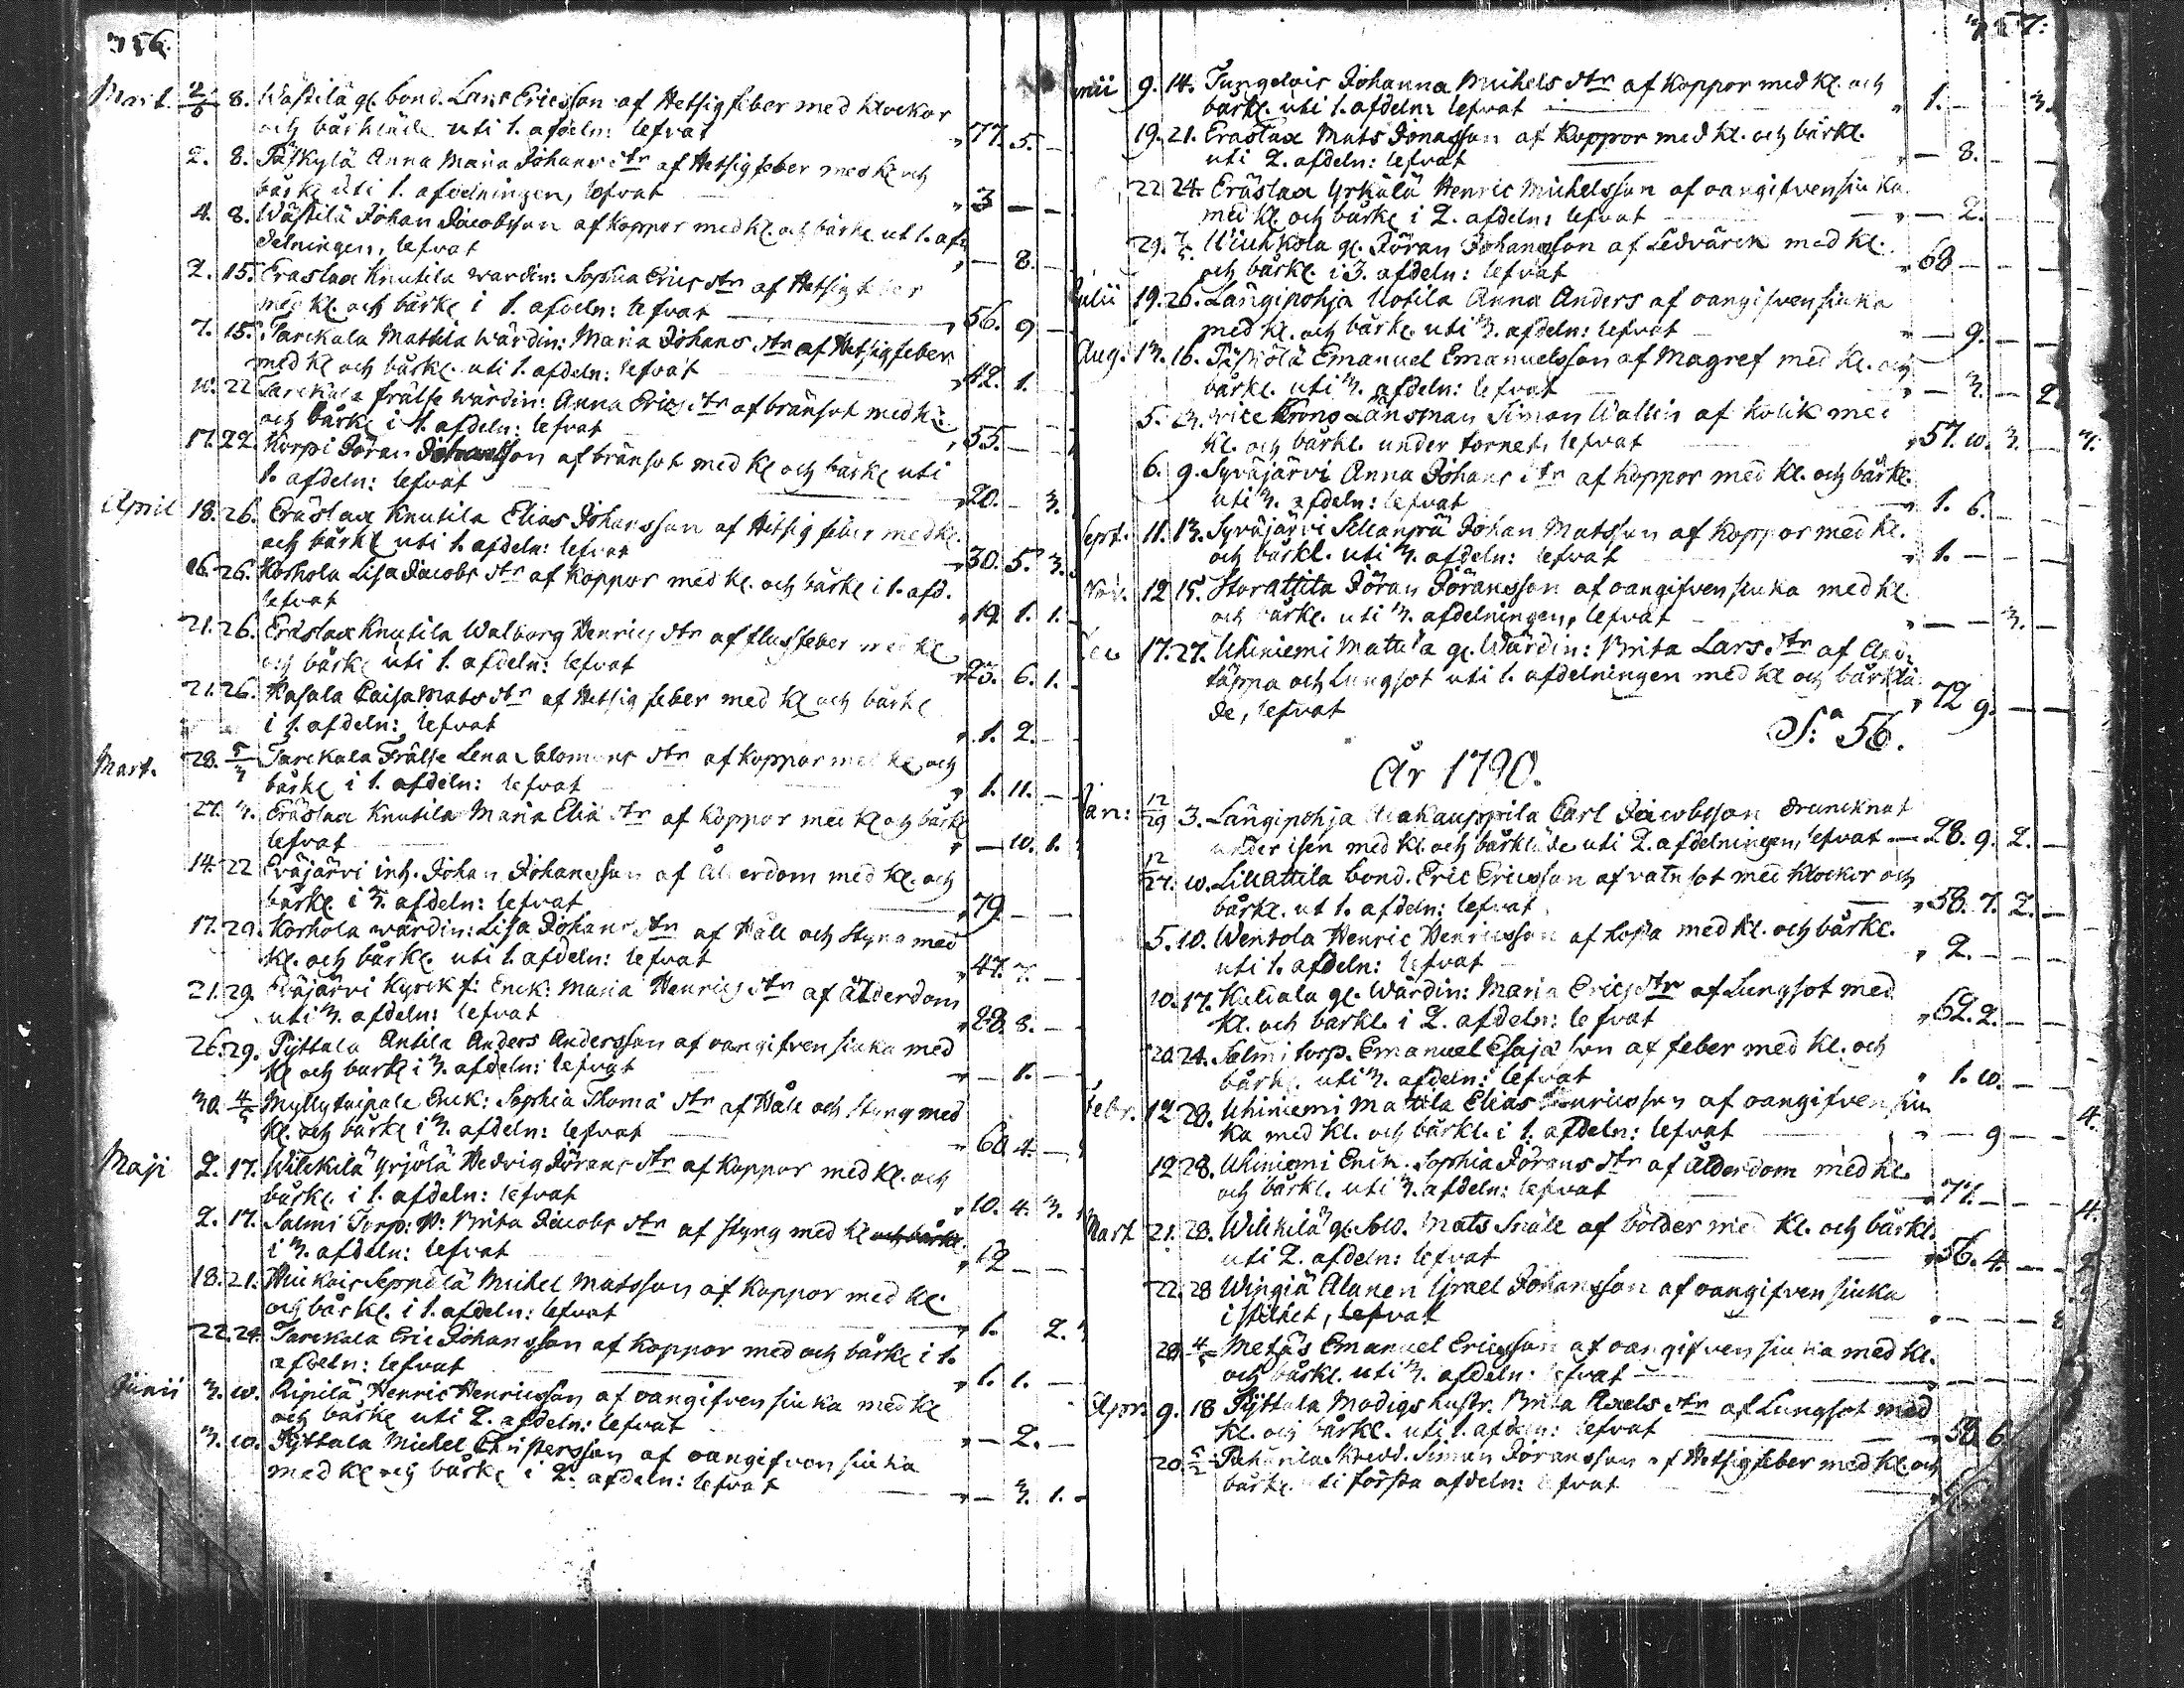 356.
Mart. 2/6 8. Wästilä gl. bond. Lars Ericsson af Hetsig feber med klockor
och bårkläde uti 1. afdeln: lefvat " 77. 5. —
2. 8. Päskylä Anna Maria Johans dtr af Hetsig feber med kl och
bårkl uti 1. afdelningen, lefvat " 3 — —
4. 8. Wästilä Johan Jacobsson af Koppor med kl. och bårkl ut 1. af:
delningen, lefvat " — 8. —
2. 15. Eräslax Knutila wardin: Sophia Erics dtr af Hetsig feber
med kl. och bårkl i 1. afdeln: lefvat — " 56. 9 —
7. 15. Tarckala Mattila Wärdin: Maria Johans dtr af Hetsig feber
med kl och bårkl. uti 1. afdeln: lefvat " 42. 1. —
10. 22 Tarckala frälse wärdin: Anna Erics dtr af bränsot med kl:
och bårkl i 1. afdeln: lefvat " 55. — —
17. 22. Korpi Jöran Johansson af bränsot med kl och bårkl uti
1. afdeln: lefvat — " 20. — 3.
April 18. 26. Eräslax Knutila Elias Johansson af Hetsig feber med kl.
och bårkl uti 1. afdeln: lefvat " 30. 5. 3.
26. 26. Korhola Lisa Jacobs dtr af Koppor med kl. och bårkl i 1. afd.
lefvat " 19. 1. 1.
21. 26. Eräslax Knutila Walborg Henrics dtr af flussfeber med kl
och bårkl uti 1. afdeln: lefvat " 23. 6. 1.
21. 26. Hasala Caisa Mats dtr af Hetsig feber med kl och bårkl
i 1. afdeln: lefvat " 1. 2. —
Mart. 28. 5/3 Tarckala Frälse Lena Salomons dtr af koppor med kl och
bårkl i 1. afdeln: lefvat " 1. 11. —
27. 3. Eräslax Knutila Maria Elia dtr af Koppor med kl och bårkl
lefvat " — 10. 1.
14. 22 Eväjärvi inh. Johan Johansson af Ålderdom med kl. och
bårkl. i 3. afdeln: lefvat " 79 — —
17. 29. Korhola wärdin: Lisa Johans dtr af Håll och Styng med
kl. och bårkl. uti 1. afdeln: lefvat " 47. 7. —
21. 29. Eväjärvi Kyrck f: Enck: Maria Henrics dtr af Ålderdom
uti 3. afdeln: lefvat " 28 8. —
26. 29. Pyttala Antila Anders Andersson af oangifven siuka med
kl och bårkl i 3. afdeln: lefvat " — 1. —
30. 4/5 Myllytaipale Enck: Sophia Thoma dtr af Håll och styng med
kl. och bårkl i 3. afdeln: lefvat " 60 4. —
Maji 2. 17. Wilckilä Yrjölä Hedvig Jörans dtr af Koppor med kl. och
bårkl. i 1. afdeln: lefvat " 10. 4. 3.
2. 17. Salmi Torp: P: Brita Jacobs dtr af styng med kl och bårkl.
i 3. afdeln: lefvat " 12 — —
18. 21. Michel Matsson af Koppor med kl
och bårkl. i 1. afdeln: lefvat " 1. 2.
22. 24. Tarckala Eric Johansson af Koppor med och bårkl i 1.
afdeln: lefvat " 1. 1. —
Junii 3. 10. Ripilä Henric Henricsson af oangifven siuka med kl
och bårkl uti 2. afdeln: lefvat " — 2. —
3. 10. Pyttala Michel Christersson af oangifven siuka
med kl och bårkl i 2. afdeln: lefvat " — 3. 1.
357.
9. 14. Johanna Michels dtr af Koppor med kl. och
bårkl. uti 1. afdeln: lefvat " 1. — 3.
19. 21. Eräslax Mats Jonasson af Koppor med kl. och bårkl.
uti 2. afdeln: lefvat " — 8. —
22 24. Eräslax Yrkälä Henric Michelsson af oangifven siuka
med kl. och bårkl i 2. afdeln: lefvat " — 2. —
29. gl. Jöran Johansson af Ledvärck med kl.
och bårkl. i 3. afdeln: lefvat " 68 — —
Julii 19. 26. Längipohja Uotila Anna Anders af oangifven siuka
med kl. och bårkl. uti 3. afdeln: lefvat " — 9. —
Aug. 13. 16. Emanuel Emanuelsson af Magref med kl. och
bårkl. uti 3. afdeln: lefvat " — 3. — 2
5. 23. vice Krono Länsman Simon Wallin af Kolik med
kl. och bårkl. under tornet, lefvat " 57. 10. 3.
6. 9. Syväjärvi Anna Johans dtr af koppor med kl. och bårkl.
uti 3. afdeln: lefvat " 1. 6. —
Sept. 11. 13. Syväjärvi Johan Matsson af Koppor med kl.
och bårkl. uti 3. afdeln: lefvat " 1. — —
Nov. 12 15. Storattila Jöran Jöransson af oangifven siuka med kl.
och bårkl. uti 3. afdelningen, lefvat " — — 3. —
17. 27. Uhiniemi Mattila gl. Wärdin: Brita Lars dtr af And:
täppa och Lungsot uti 1. afdelningen med kl och bårklä:
de, lefvat " 72 9. —
S:a 56.
År 1790.
Jan: 12/29 3. Längipohja Alakauppila Carl Jacobsson druncknat
under isen med kl. och bårkläde uti 2. afdelningen, lefvat — 28. 9. 2. —
12/27. 10. Lillattila bond. Eric Ericsson af vatusot med klockor och
bårkl. ut 1. afdeln: lefvat " 58. 7. 2. —
5. 10. Wentola Henric Henricsson af hosta med kl. och bårkl.
uti 1. afdeln: lefvat " 2. — —
10. 17. Kaliala gl. Wärdin: Maria Erics dtr af Lungsot med
kl. och bårkl. i 2. afdeln: lefvat " 62. 2. —
20. 24. Salmi torp. Emanuel Esaja son af feber med kl. och
bårkl. uti 3. afdeln: lefvat " 1. 10. —
Febr. 12 28. Uhiniemi Mattila Elias Henricsson af oangifven siu
ka med kl. och bårkl. i 1. afdeln: lefvat " — 9 — — 4.
12 28. Uhiniemi Enck. Sophia Jörans dtr af Ålderdom med kl.
och bårkl. uti 3. afdeln: lefvat " 77. — — 4.
Mart 21. 28. Wilckilä gl. Sold. Mats Snäll af bölder med kl. och bårkl.
uti 2. afdeln: lefvat " 56. 4. — 2
22. 28 Wingiä Alanen Israel Johansson af oangifven siuka
i stillhet, lefvat " — — —
28. 4/5 Metäs Emanuel Ericsson af oangifven siuka med kl.
och bårkl. uti 3. afdeln: lefvat — — —
Apr. 9. 18 Pyttala Modigs hustr. Brita Axels dtr af Lungsot med
kl. och bårkl. uti 1. afdeln: lefvat " 50 6.
20. Simon Jöransson af Hetsig feber med kl. och
bårkl. uti första afdeln: lefvat